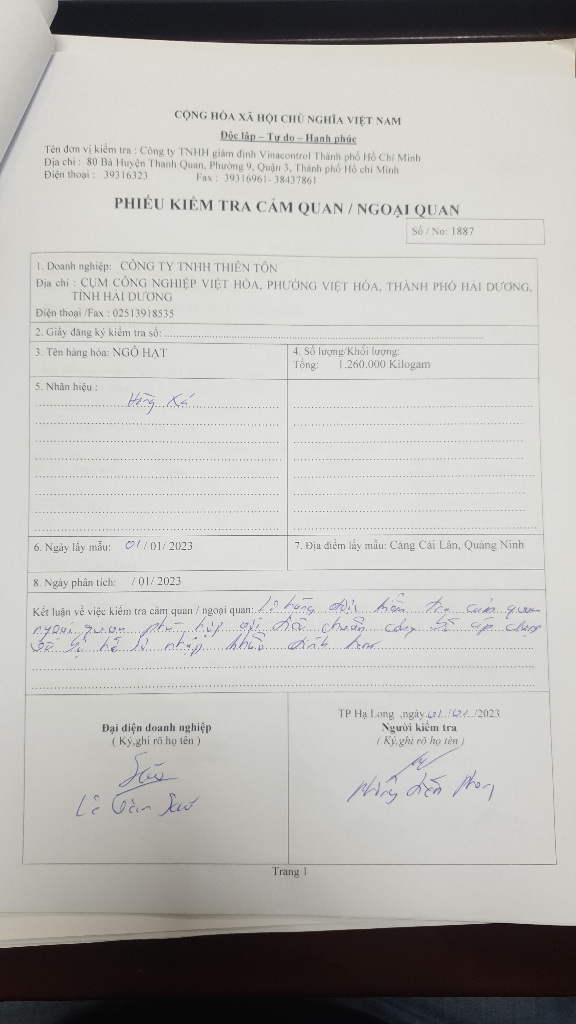 CỘNG HÒA XÃ HỘI CHỦ NGHĨA VIỆT NAM
Độc lập – Tự do – Hạnh phúc
Tên đơn vị kiểm tra : Công ty TNHH giám định Vinacontrol Thành phố Hồ Chí Minh
Địa chỉ : 80 Bà Huyện Thanh Quan, Phường 9, Quận 3, Thành phố Hồ chí Minh
Điện thoại : 39316323 Fax : 39316961- 38437861
PHIẾU KIỂM TRA CẢM QUAN / NGOẠI QUAN
Số / No: 1887
1. Doanh nghiệp: CÔNG TY TNHH THIÊN TÔN
Địa chỉ : CỤM CÔNG NGHIỆP VIỆT HÒA, PHƯỜNG VIỆT HÒA, THÀNH PHỐ HẢI DƯƠNG,
TỈNH HẢI DƯƠNG
Điện thoại /Fax : 02513918535
2. Giấy đăng ký kiểm tra số:
3. Tên hàng hóa: NGÔ HẠT
4. Số lượng/Khối lượng:
Tổng: 1.260.000 Kilogam
5. Nhãn hiệu :
Hàng Xá
6. Ngày lấy mẫu: 01/ 01/ 2023
7. Địa điểm lấy mẫu: Cảng Cái Lân, Quảng Ninh
8. Ngày phân tích: / 01/ 2023
Kết luận về việc kiểm tra cảm quan / ngoại quan: Lô hàng được kiểm tra cảm quan
ngoại quan phù hợp với tiêu chuẩn công bố áp dụng
và hồ sơ nhập khẩu đính kèm
TP Hạ Long ,ngày 01/01/2023
Đại diện doanh nghiệp
( Ký,ghi rõ họ tên )
Người kiểm tra
( Ký,ghi rõ họ tên )
Lê Văn
Phong
Trang 1